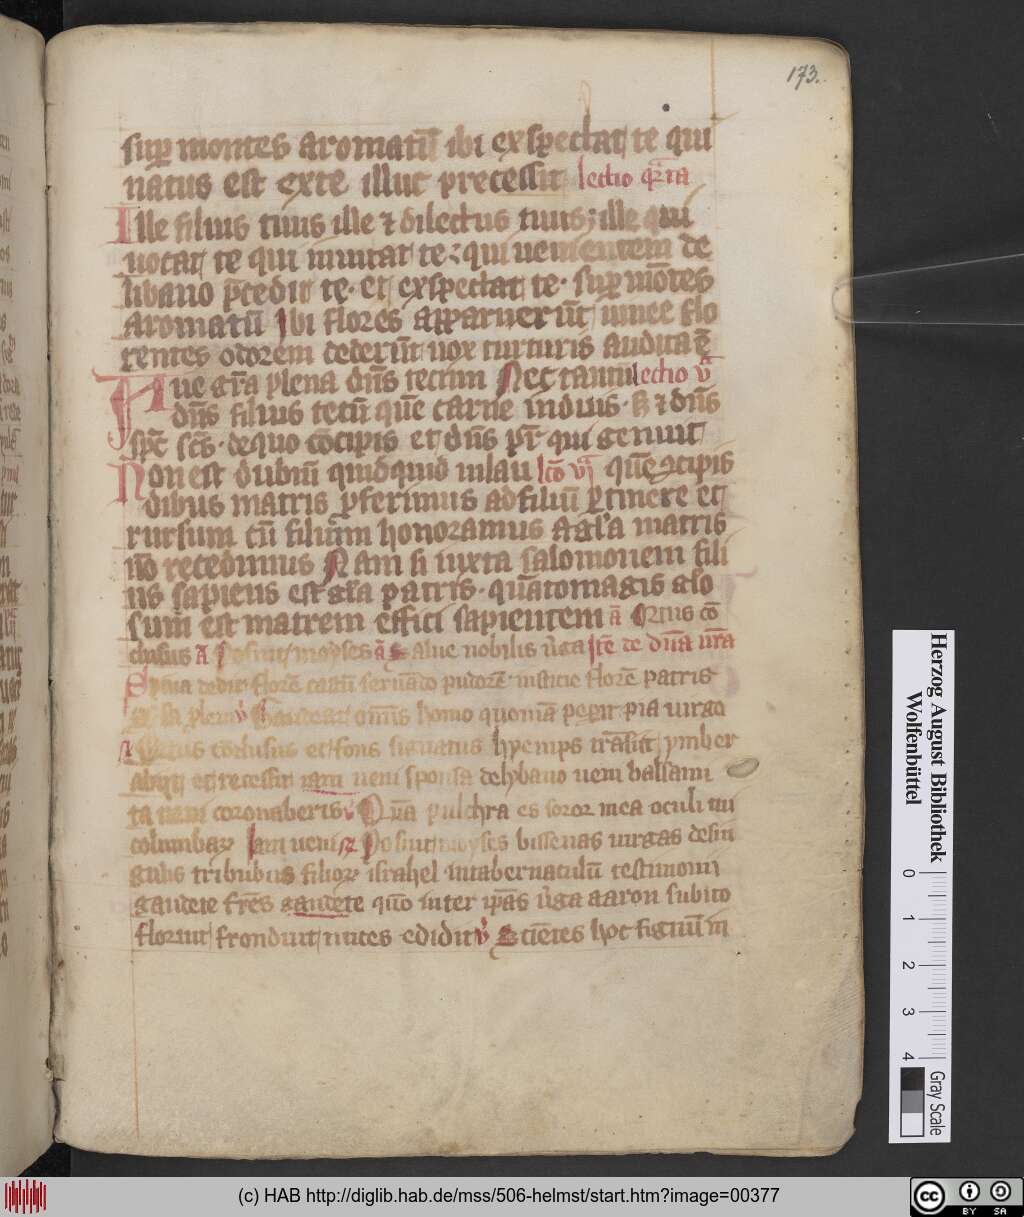 173.
sup montes aromatū ibi exspectat te qui
natus est exte illuc precessit lectio qrta
Ille filius tuus ille ⁊ dilectus tuus; ille qui
uocat te qui inuitat te: qui uenientem de
libano pcedit te. et exspectat te. sup mōtes
aromatū Ibi flores apparuerūt uinee flo
rentes odorem dederūt uox turturis audita ē
Aue gra plena dn̄s tecum Nec tantū lectio v
dn̄s filius tecū quē carne induis. sꝫ ⁊ dn̄s
spc scs. dequo cōcipis et dn̄s pr qui genuit
Non est dubiū quidquid inlau lcō vi quē ꝯcipis
dibus matris pferimus ad filiū ptinere et
rursum cū filium honoramus a gla matris
nō recedimus Nam si iuxta salomonem fili
us sapiens est gla patris. quātomagis ipso
sum est matrem effici sapientem ā Ortus cō
clusus A Posuit moyses ā Salue nobilis uga Ite de dn̄a nra
Spina dedit florē castū seruādo pudorē iusticie florē patris
Gaudeat omīs homo quoniā pepit pia uirgo
Ortus cōclusus et fons signatus hyemps trāsiit ymber
abijt et recessit iam ueni sponsa delybano ueni balsami
ta ueni coronaberis v Qm̄a pulchra es soror mea oculi tui
columbaꝝ Iam ueni ꝶ Posuit moyses bissenas uirgas desin
gulis tribubus filioꝝ israhel intabernaculū testimonii
gaudete frēs gaudete quō inter ipas uga aaron subito
floruit fronduit nuces edidit v Scientes hoc signum in
Herzog August Bibliothek
Wolfenbüttel
0 1 2 3 4
Gray Scale
(c) HAB http://diglib.hab.de/mss/506-helmst/start.htm?image=00377
cc BY SA